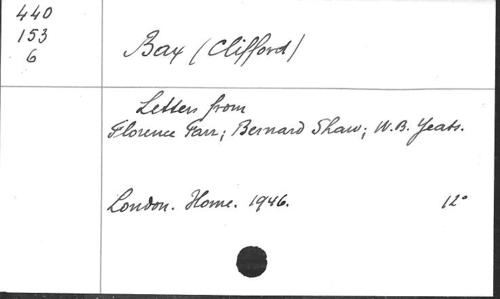 440
153
6
Bax (Clifford)
Letters from
Florence Farr; Bernard Shaw; W.B. Yeats.
London. Home. 1946. 12°